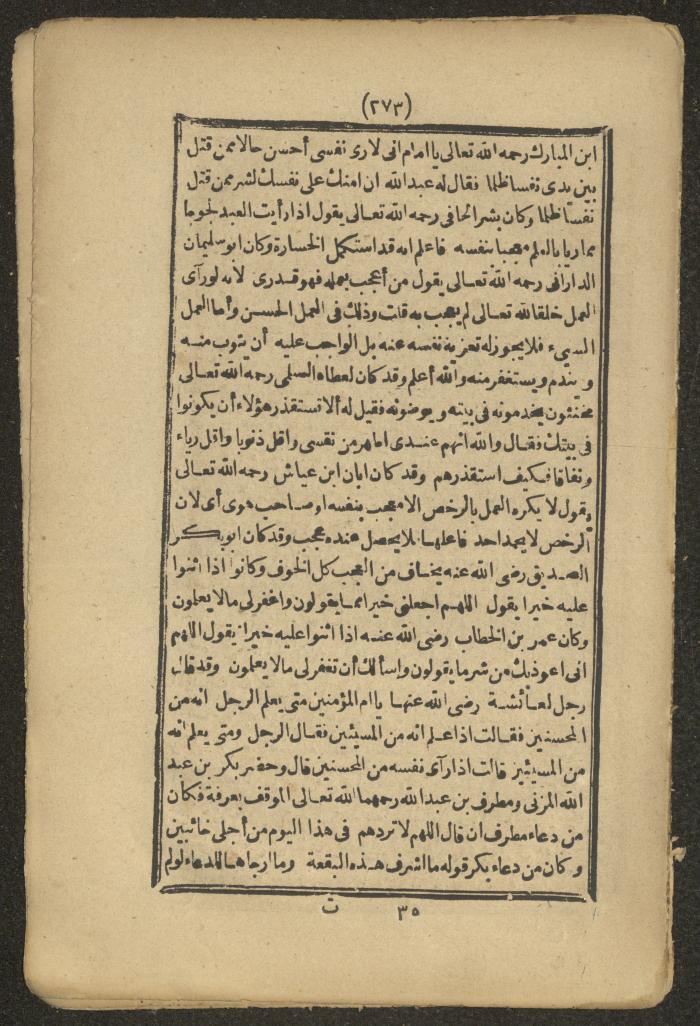 (٢٧٣)
ابن المبارك رحمه الله تعالى يا امام انى لارى نفسى أحسن حالا ممن قتل
بين يدى نفسا ظلما فقال له عبد الله ان امنك على نفسك لشر ممن قتل
نفسا ظلما وكان بشر الحافى رحمه الله تعالى يقول اذا رأيت العبد لجوجا
مماريا بالعلم معجبا بنفسه فاعلم انه قد استكمل الخسارة وكان ابو سليمان
الدارانى رحمه الله تعالى يقول من أعجب بعمله فهو قدرى لانه لو رآى
العمل خلقا لله تعالى لم يعجب به قلت وذلك فى العمل الحسن وأما العمل
السيىء فلا يجوز له تعزية نفسه عنه بل الواجب عليه أن يتوب منه
ويندم ويستغفر منه والله أعلم وقد كان لعطاء السلمى رحمه الله تعالى
مخنثون يخدمونه فى بيته ويوضونه فقيل له ألا تستقذر هؤلاء أن يكونوا
فى بيتك فقال والله انهم عندى اطهر من نفسى واقل ذنوبا واقل رياء
ونفاقا فكيف استقذرهم وقد كان ابان ابن عياش رحمه الله تعالى
يقول لا يكره العمل بالرخص الا معجب بنفسه او صاحب هوى أى لان
الرخص لا يحمد احد فاعلها فلا يحصل عنده عجب وقد كان ابو بكر
الصديق رضى الله عنه يخاف من العجب كل الخوف وكانوا اذا اثنوا
عليه خيرا يقول اللهم اجعلنى خيرا مما يقولون واغفر لى مالا يعلمون
وكان عمر بن الخطاب رضى الله عنه اذا اثنوا عليه خيرا يقول اللهم
انى اعوذ بك من شر ما يقولون واسألك أن تغفر لى مالا يعلمون وقد قال
رجل لعائشة رضى الله عنها يا ام المؤمنين متى يعلم الرجل انه من
المحسنين فقالت اذا علم انه من المسيئين فقال الرجل ومتى يعلم انه
من المسيئين قالت اذا رآى نفسه من المحسنين قال وحضر بكر بن عبد
الله المزنى ومطرف بن عبد الله رحمهما الله تعالى الموقف بعرفة فكان
من دعاء مطرف ان قال اللهم لا تردهم فى هذا اليوم من أجلى خائبين
وكان من دعاء بكر قوله ما اشرف هذه البقعة وما ارجاها للدعاء لو لم
٣٥ ت